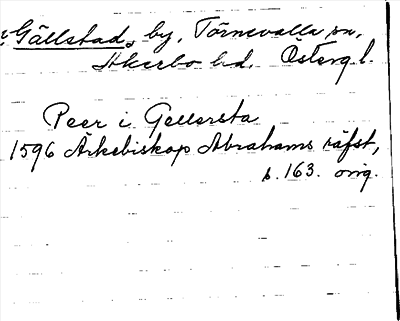 Gällstad, by, Törnevalla sn,
Åkerbo hd. Österg.l.
Peer i Gellersta
1596 Ärkebiskop Abrahams räfst,
s. 163. orig.